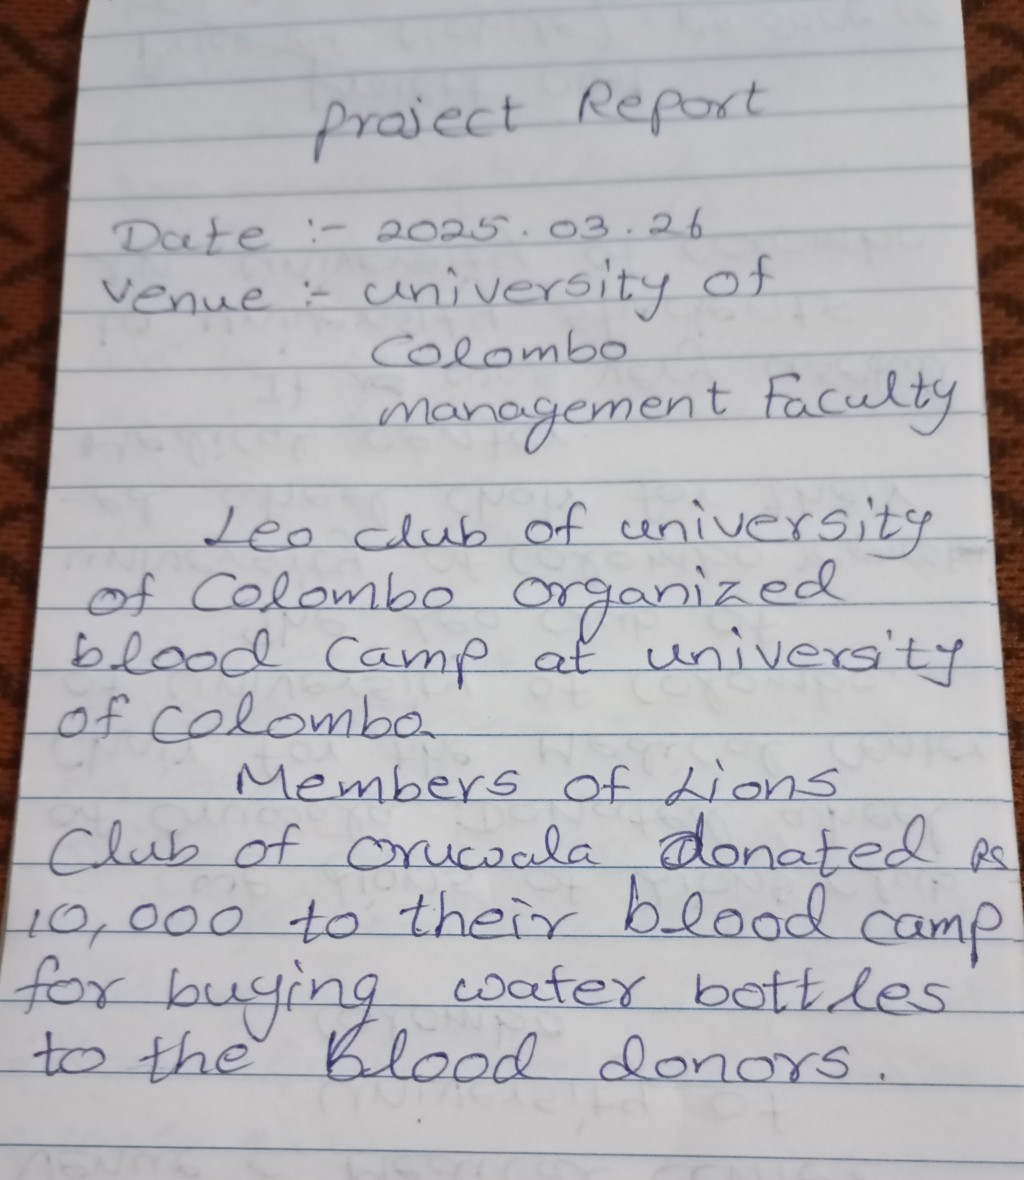 Project Report
Date :- 2025.03.26
Venue :- university of
Colombo
management Faculty
Leo club of university
of Colombo organized
blood Camp at university
of colombo.
Members of Lions
Club of oruwala donated Rs
10,000 to their blood camp
for buying water bottles
to the Blood donors.